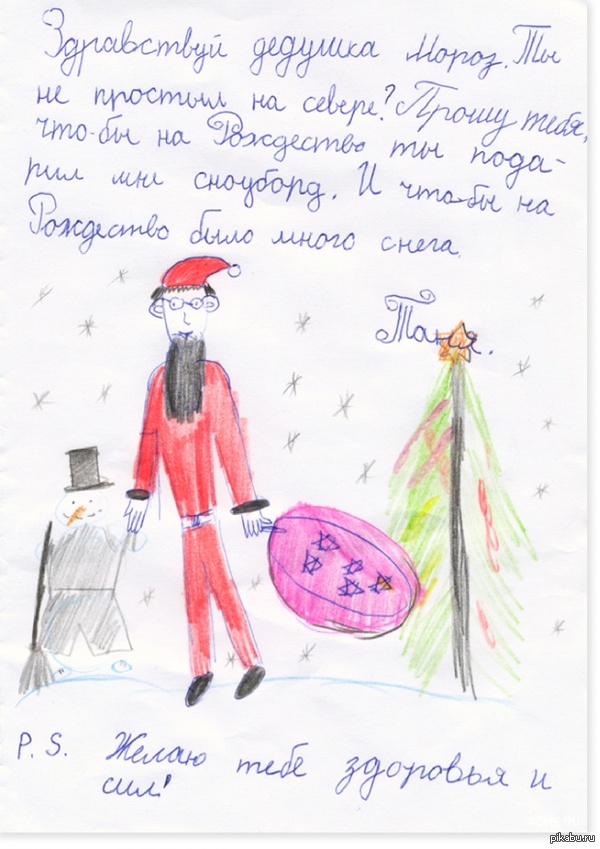 Здравствуй дедушка Мороз. Ты
не простыл на севере? Прошу тебя,
что-бы на Рождество ты пода-
рил мне сноуборд. И что-бы на
Рождество было много снега.
Таня.
P. S. Желаю тебе здоровья и
сил!
pikabu.ru